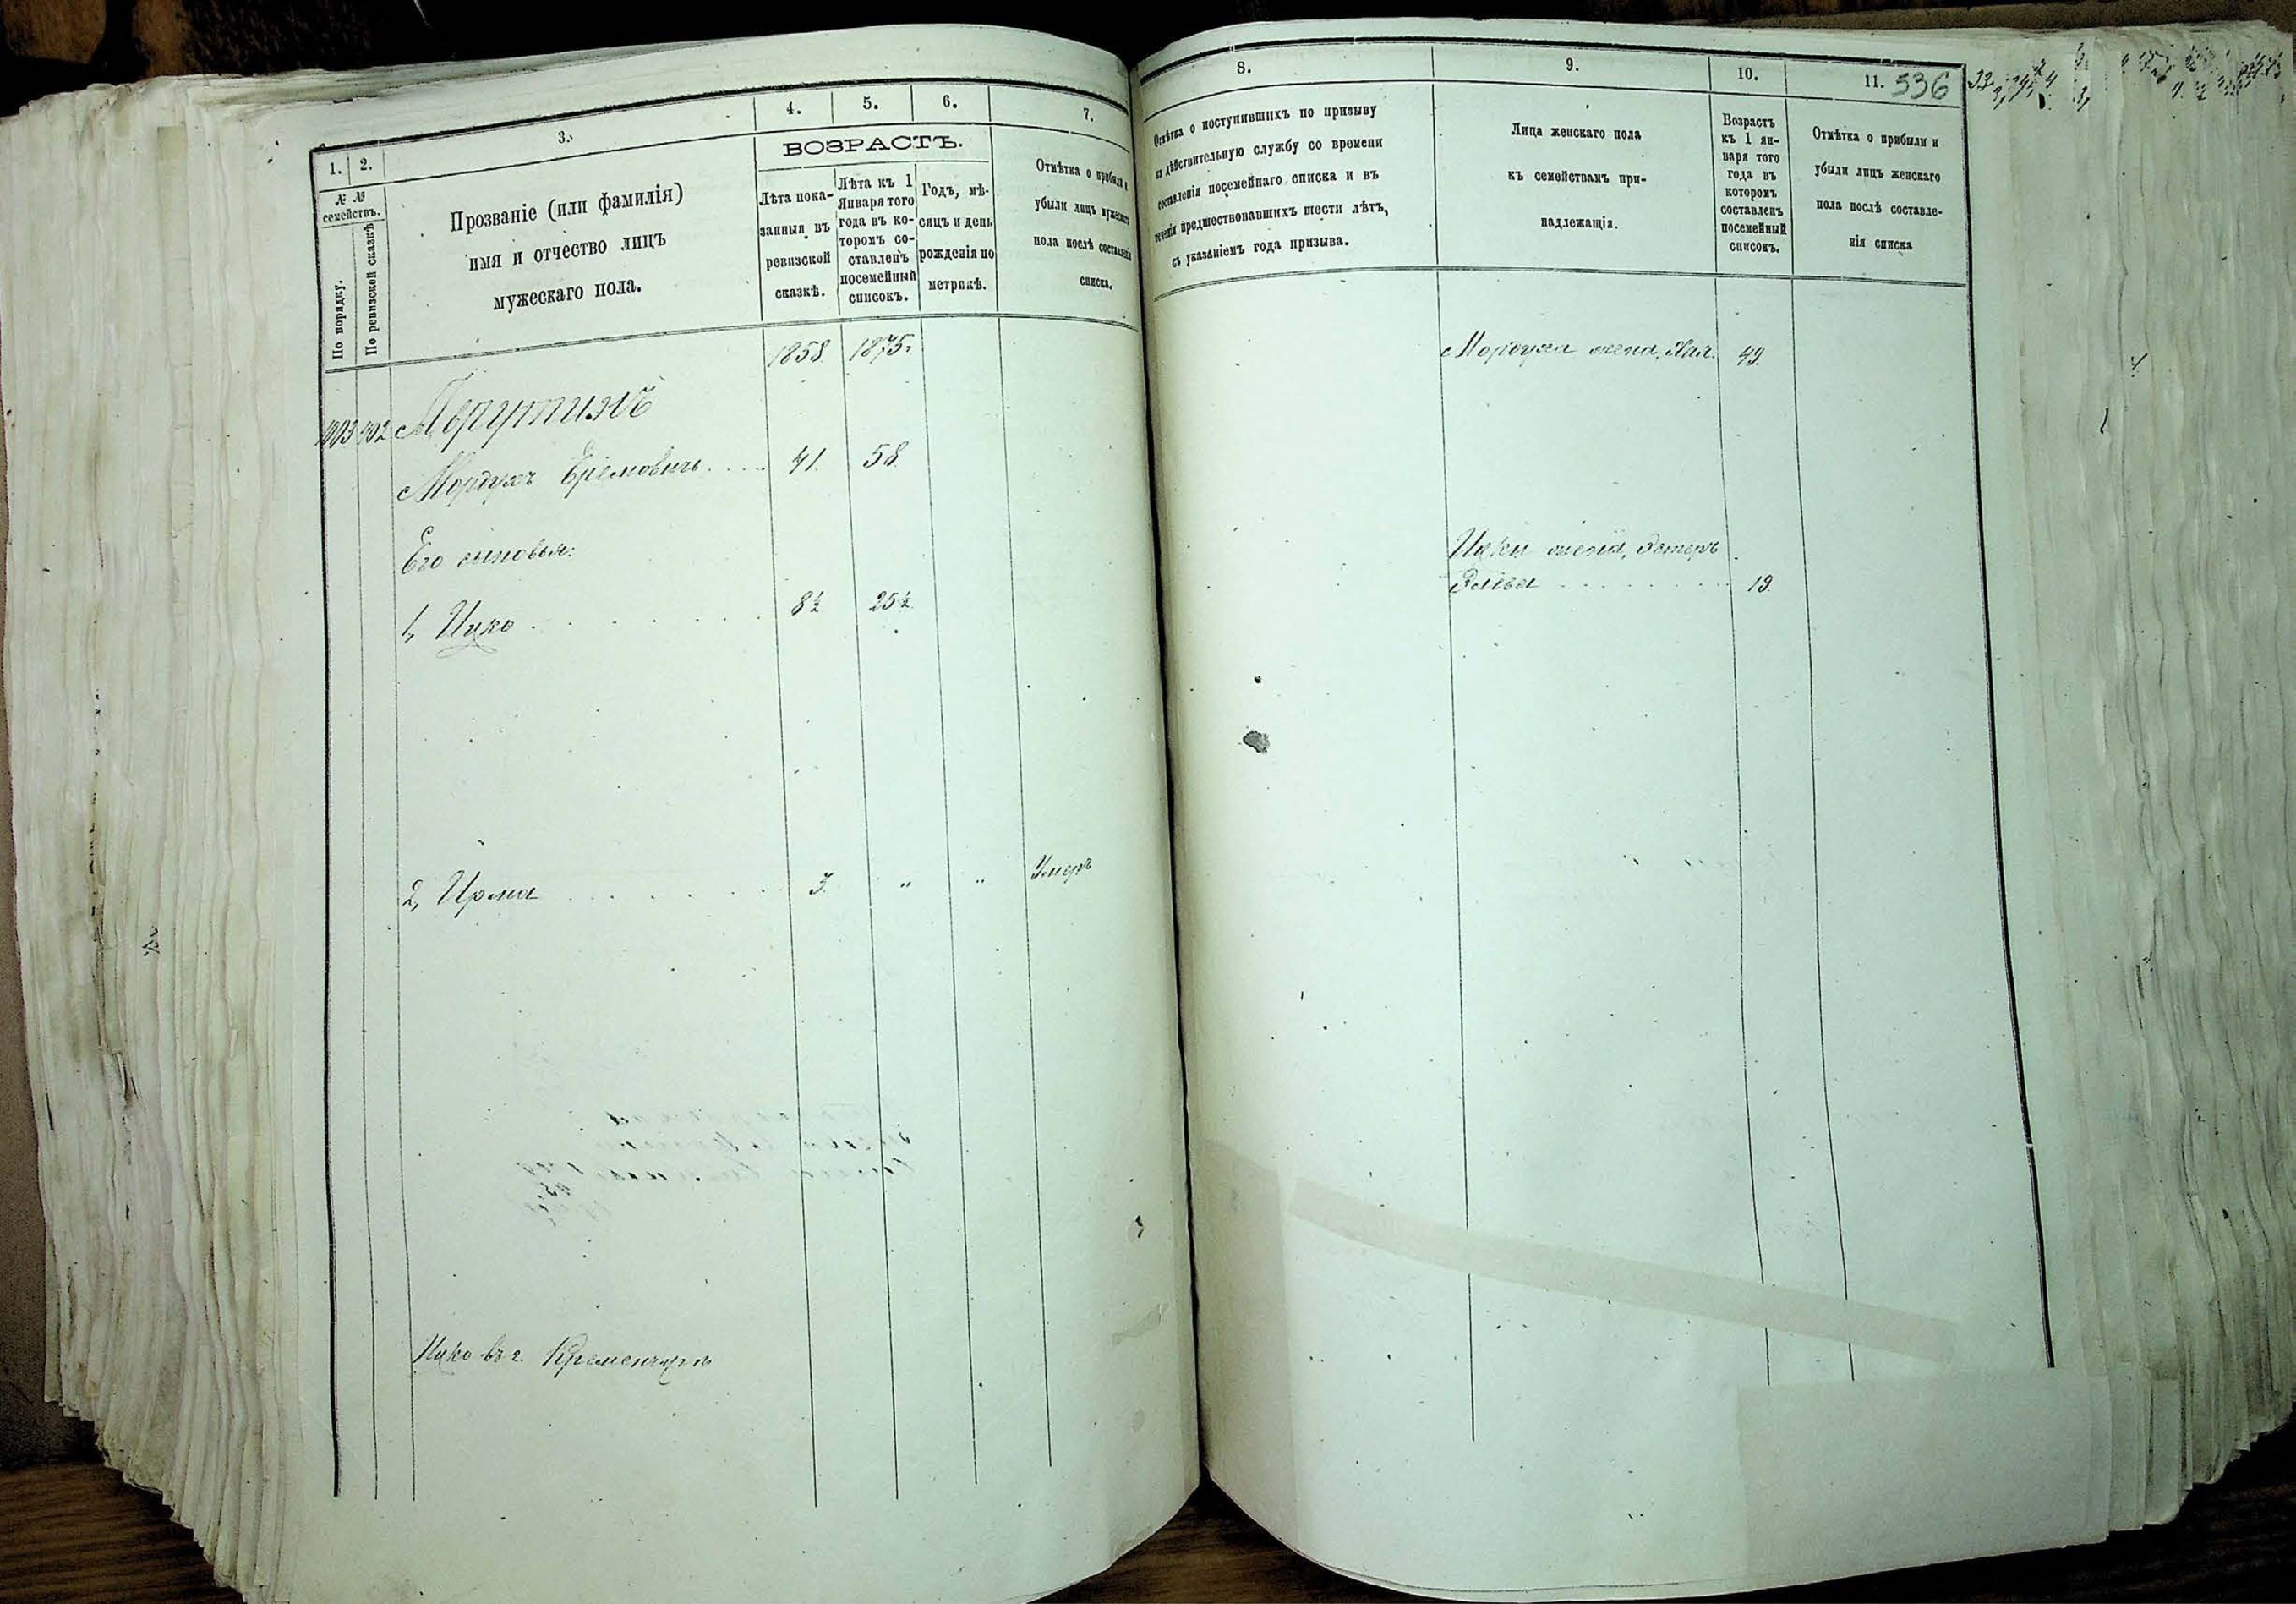 1. 2. 3. 4. 5. 6. 7.
№ № семействъ.
По порядку.
По ревизской сказкѣ
Прозваніе (или фамилія)
имя и отчество лицъ
мужескаго пола.
ВОЗРАСТЪ.
Лѣта пока-
занныя въ
ревизской
сказкѣ.
Лѣта къ 1
Января того
года въ ко-
торомъ со-
ставленъ
посемейный
списокъ.
Годъ, мѣ-
сяцъ и день
рожденія по
метрикѣ.
Отмѣтка о прибыли и
убыли лицъ мужескаго
пола послѣ составленія
списка.
1858 1875.
Мордухъ Еремовичъ 41. 58.
Его сыновья:
1, Ицко 8½ 25½
2, Ирма 3. " " Умеръ
Ицко въ г. Кременчугѣ
8. 9. 10. 11. 536
Отмѣтка о поступившихъ по призыву
на дѣйствительную службу со времени
составленія посемейнаго списка и въ
теченіи предшествовавшихъ шести лѣтъ,
съ указаніемъ года призыва.
Лица женскаго пола
къ семействамъ при-
надлежащія.
Возрастъ
къ 1 ян-
варя того
года въ
которомъ
составленъ
посемейный
списокъ.
Отмѣтка о прибыли и
убыли лицъ женскаго
пола послѣ составле-
нія списка
Мордуха жена, Хая. 49.
Ицки жена, Эстеръ
19.